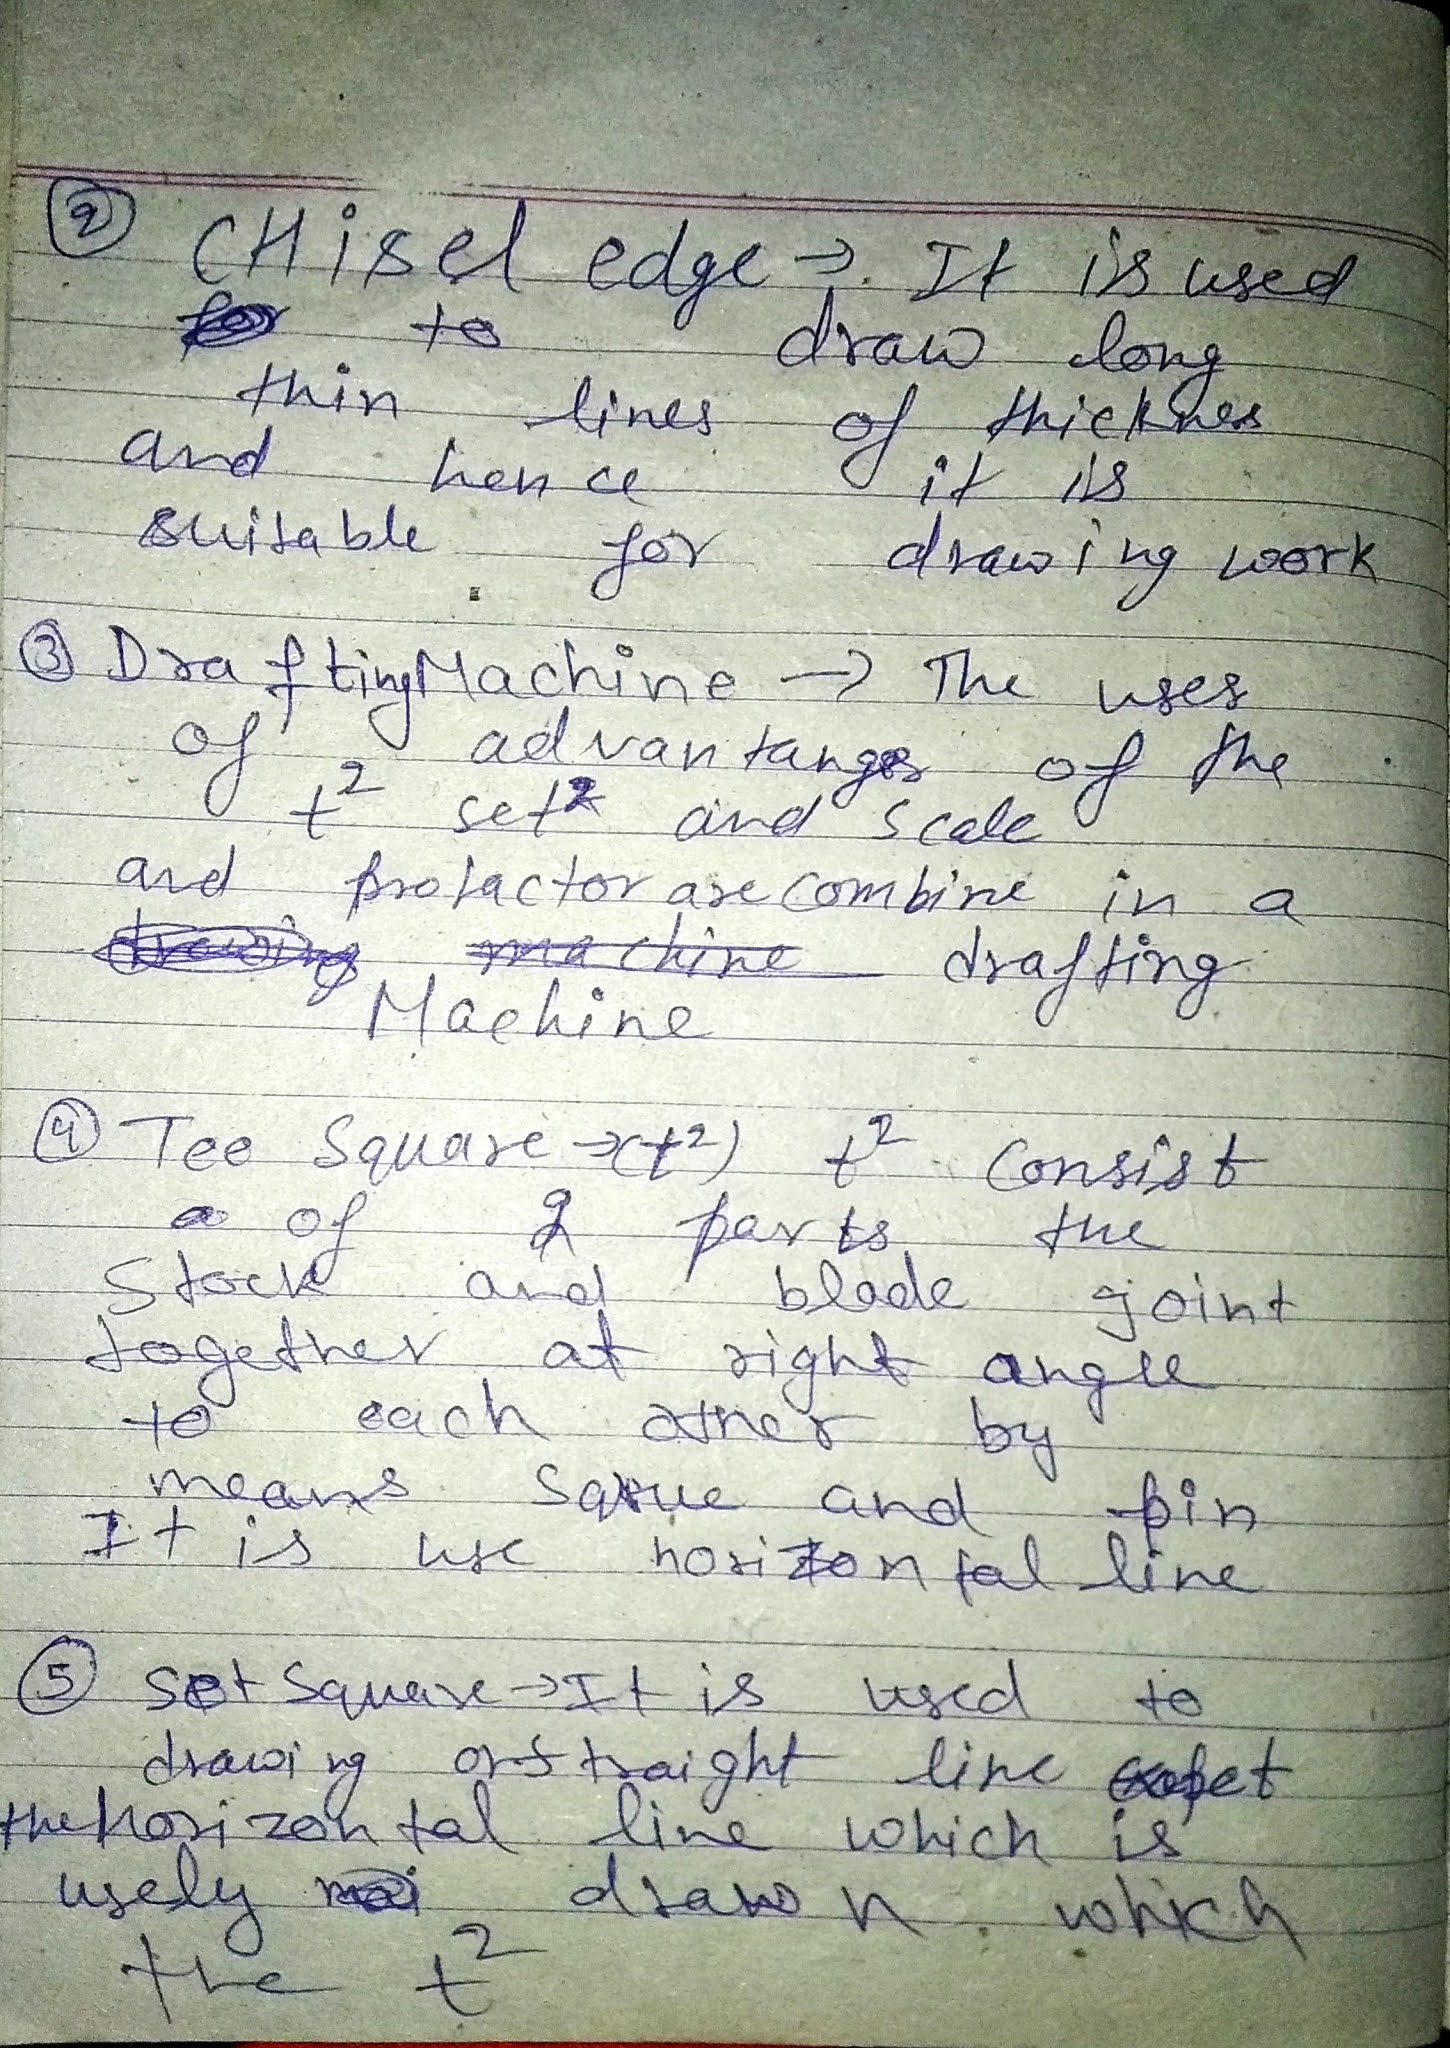 ② CHisel edge →. It is used
to draw long
thin lines of thickness
and hence it is
suitable for drawing work
③ Drafting Machine → The uses
of advantanges of the
t² set² and scale
and protactor are combine in a
drafting
Machine
④ Tee Square → (t²) t² consist
of 2 parts the
Stock and blade joint
together at right angle
to each other by
means and pin
It is use horizontal line
⑤ Set Square → It is used to
drawing straight line
the horizontal line which is
usely drawn which
the t²